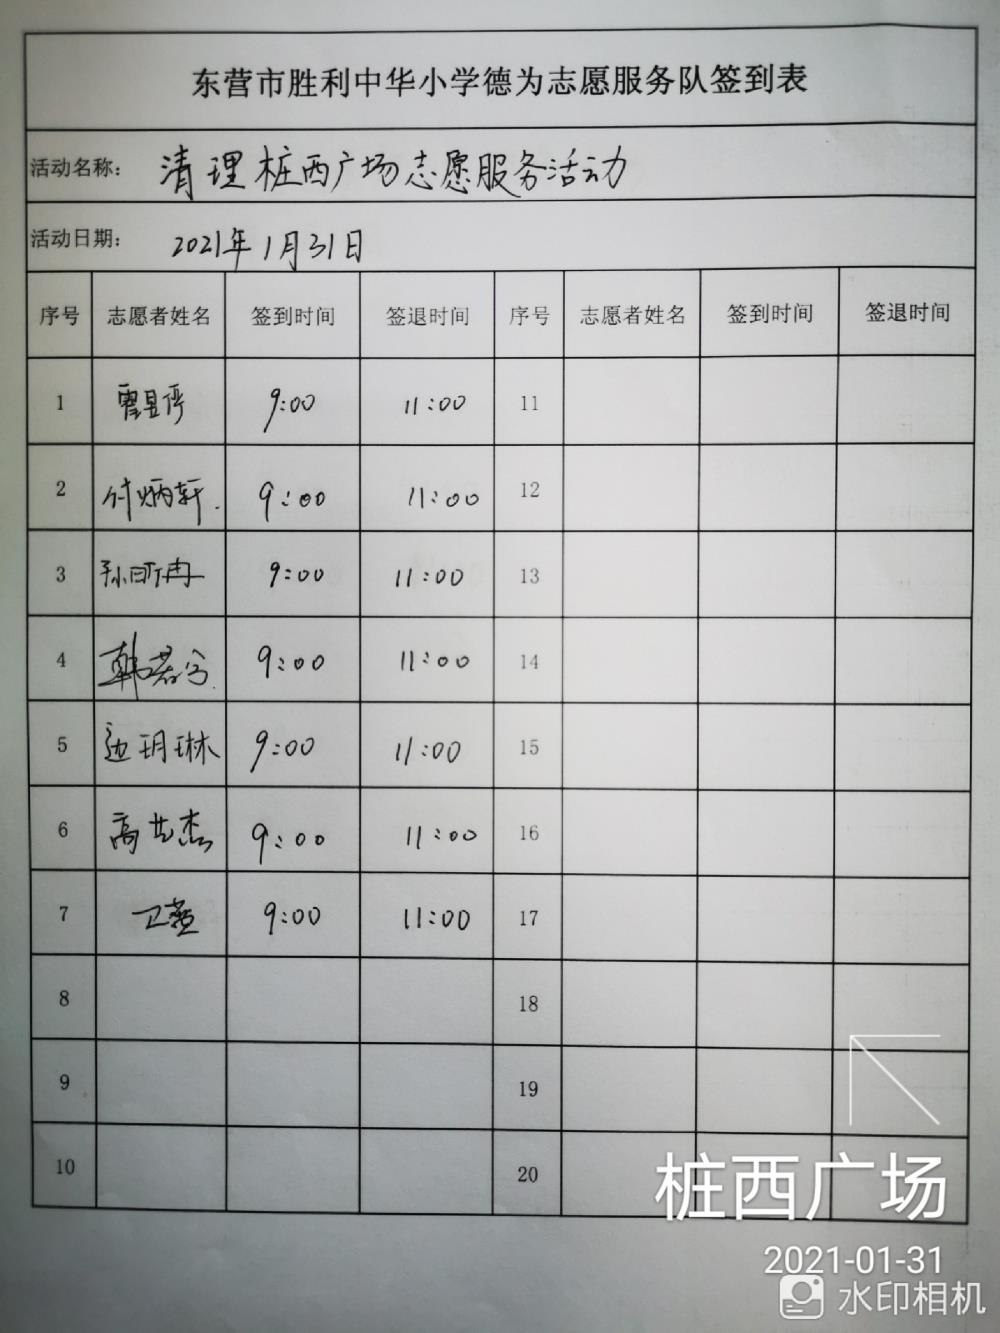 东营市胜利中华小学德为志愿服务队签到表
活动名称: 清理桩西广场志愿服务活动
活动日期: 2021年1月31日
序号 志愿者姓名 签到时间 签退时间 序号 志愿者姓名 签到时间 签退时间
1 9:00 11:00 11
2 付炳轩 9:00 11:00 12
3 9:00 11:00 13
4 韩若兮 9:00 11:00 14
5 边玥琳 9:00 11:00 15
6 高艺杰 9:00 11:00 16
7 卫燕 9:00 11:00 17
8 18
9 19
10 20
桩西广场
2021-01-31
水印相机